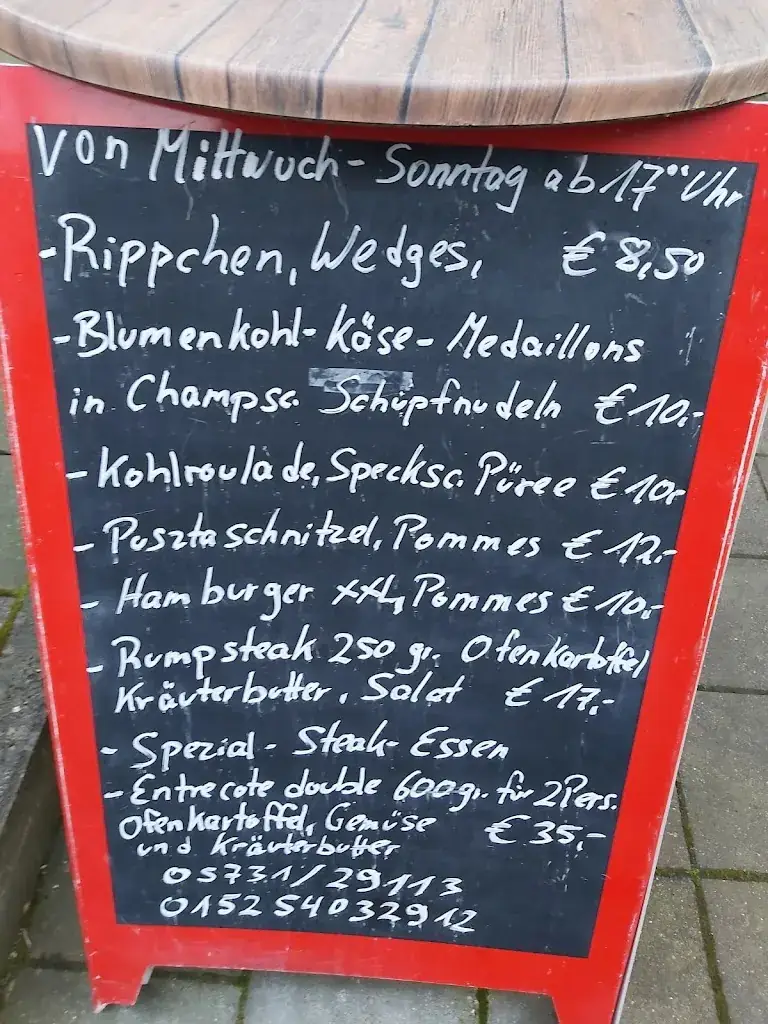 Von Mittwuch - Sonntag ab 17°° Uhr
- Rippchen, Wedges, € 8,50
- Blumenkohl-Käse-Medaillons
in Champsc. Schupfnudeln € 10,-
- Kohlroulade, Specksc. Püree € 10,-
- Pusztaschnitzel, Pommes € 12,-
- Hamburger XXL, Pommes € 10,-
- Rumpsteak 250 gr. Ofenkartoffel
Kräuterbutter, Salat € 17,-
- Spezial - Steak - Essen
- Entrecote double 600gr. für 2 Pers.
Ofenkartoffel, Gemüse € 35,-
und Kräuterbutter
05731/29113
015254032912